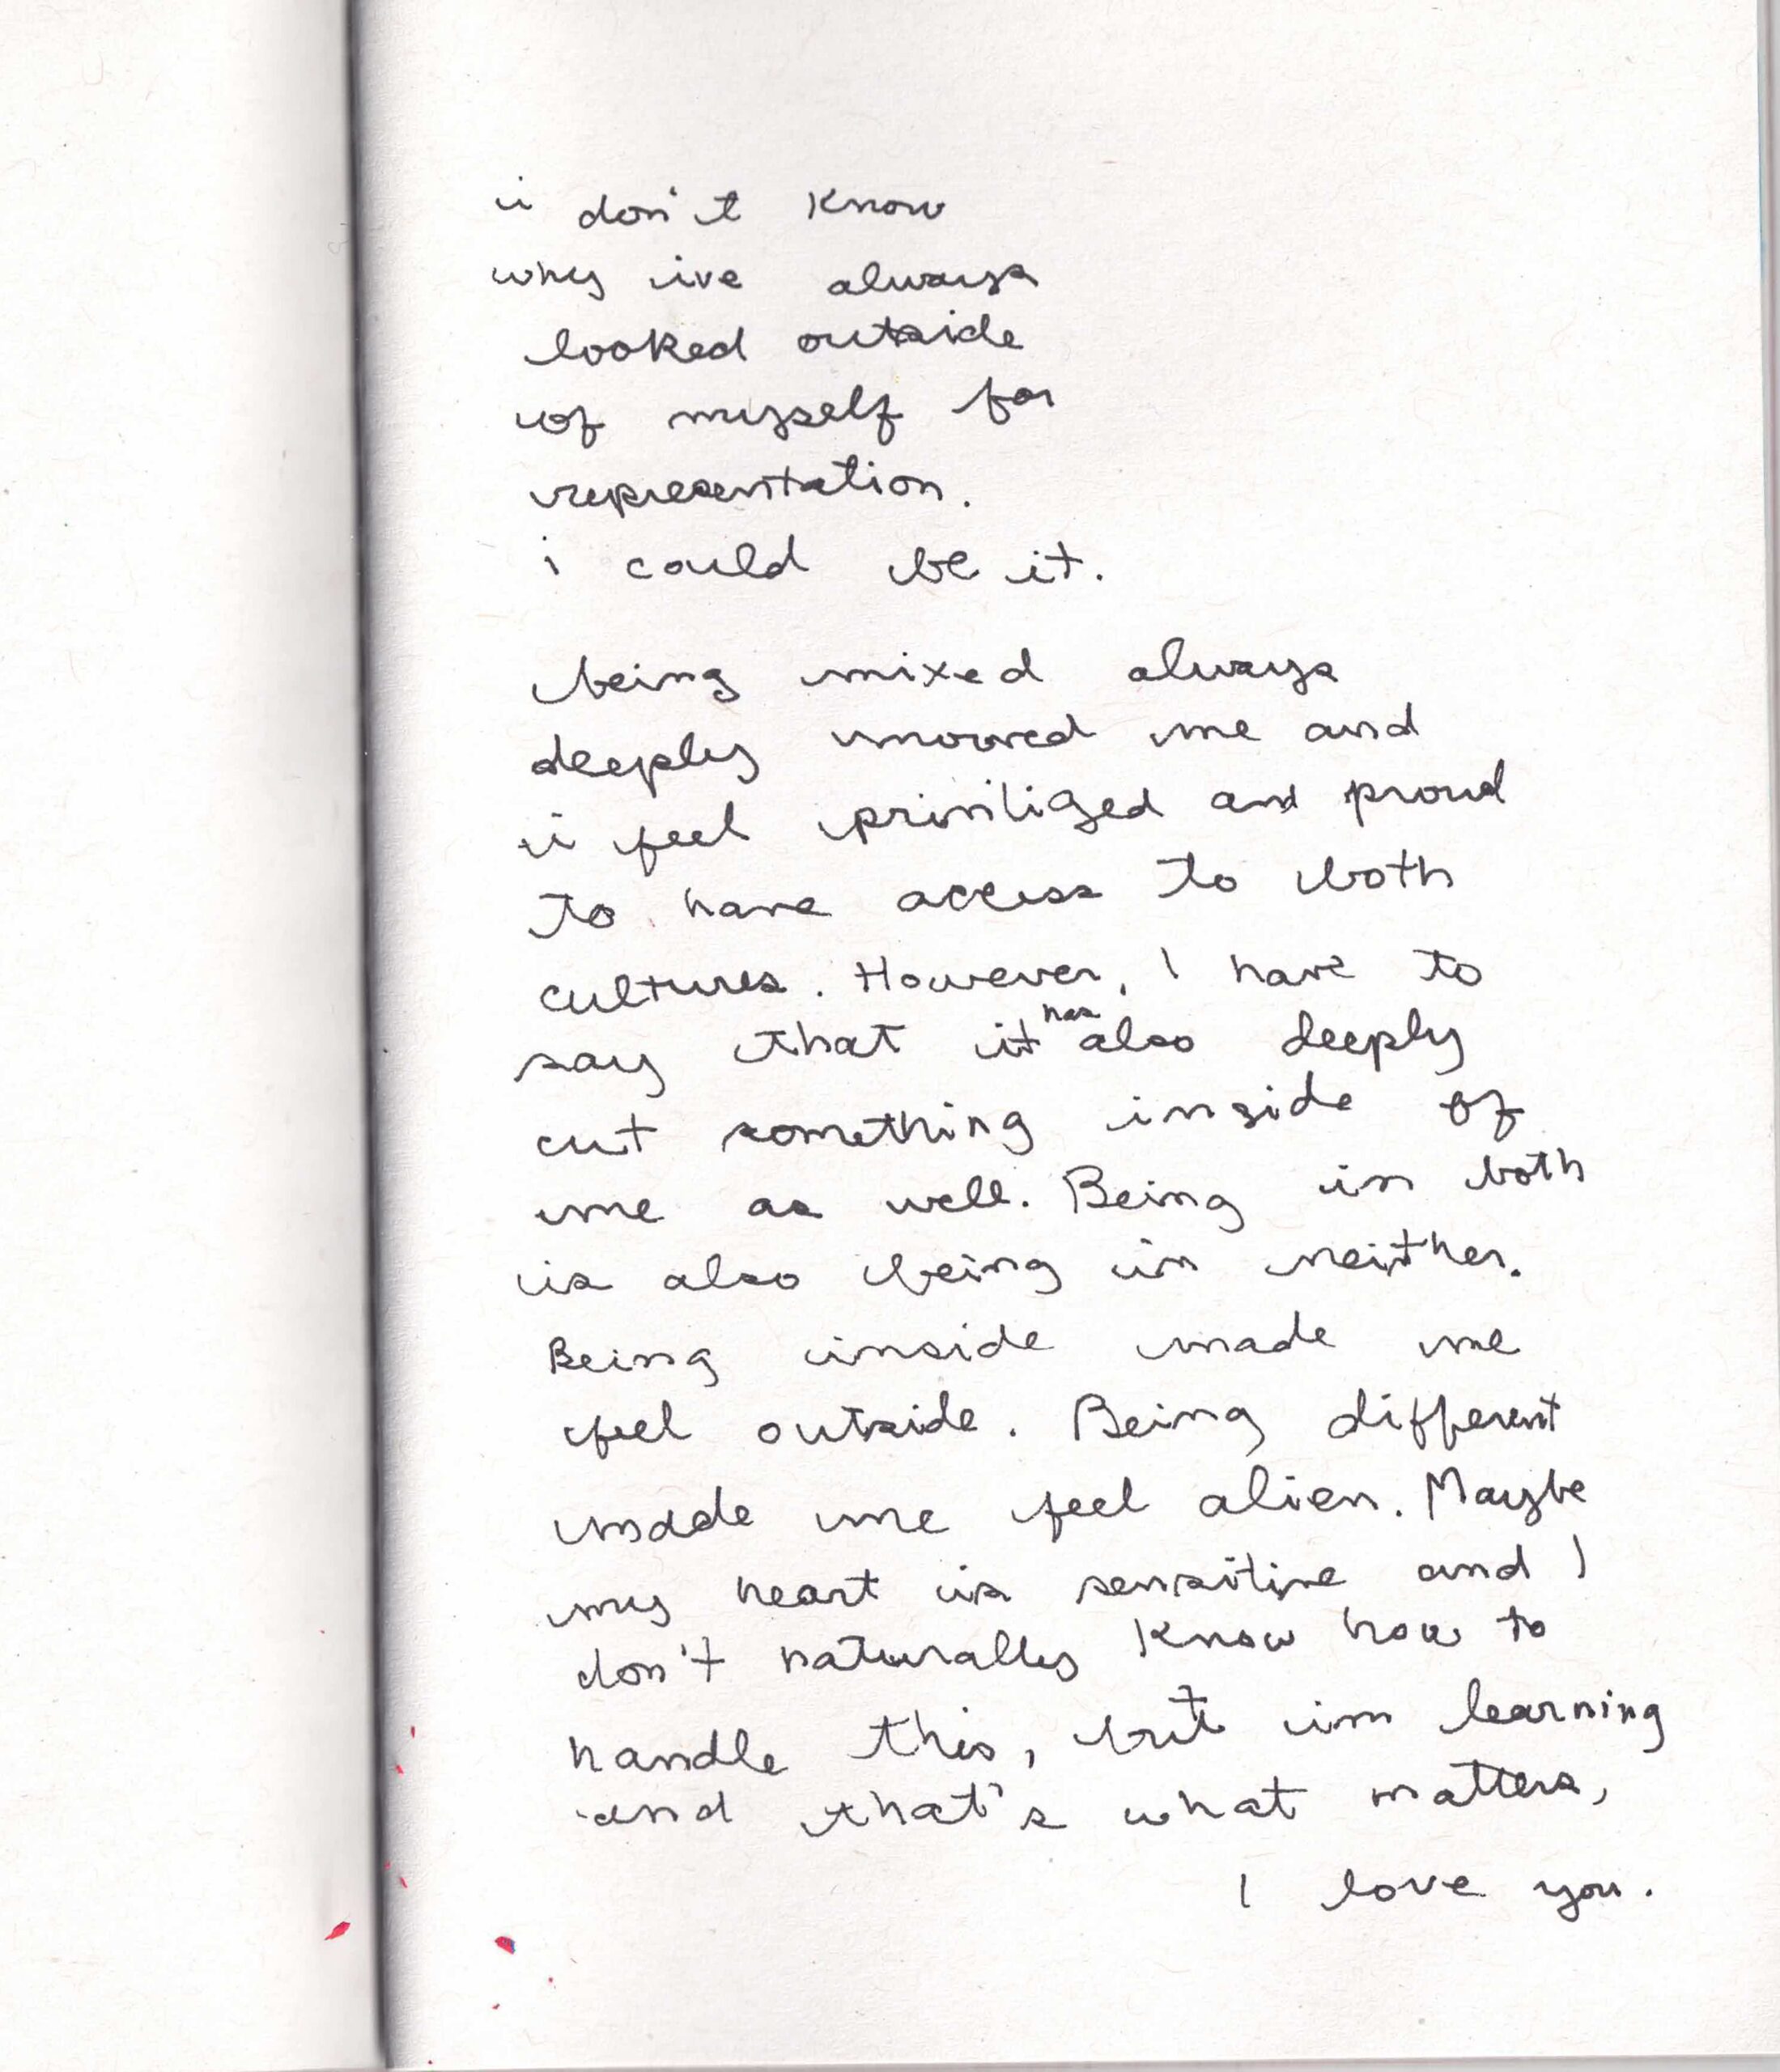 i don't know
why ive always
looked outside
of myself for
representation.
i could be it.
being mixed always
deeply moved me and
i feel priviliged and proud
to have access to both
cultures. However, I have to
say that it has also deeply
cut something inside of
me as well. Being in both
is also being in neither.
Being inside made me
feel outside. Being different
made me feel alien. Maybe
my heart is sensitive and I
don't naturally know how to
handle this, but im learning
and that's what matters,
I love you.